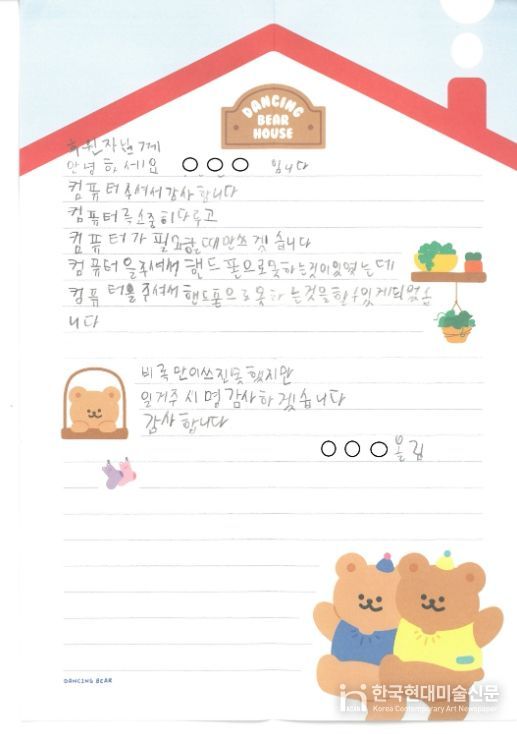 DANCING
BEAR
HOUSE
후원자님께
안녕하세요 ○○○ 입니다
컴퓨터주셔서감사합니다
컴퓨터를소중히다루고
컴퓨터가 필요할때만쓰겟습니다
컴퓨터을주셔서 핸드폰으로못하는것이있었는데
컴퓨터를 주셔서 핸드폰으로 못하는것을할수있게되었습
니다
비록 만이쓰진못했지만
일거주시명 감사하겠습니다
감사합니다
○○○올림
DANCING BEAR
in 한국현대미술신문
Korea Contemporary Art Newspaper